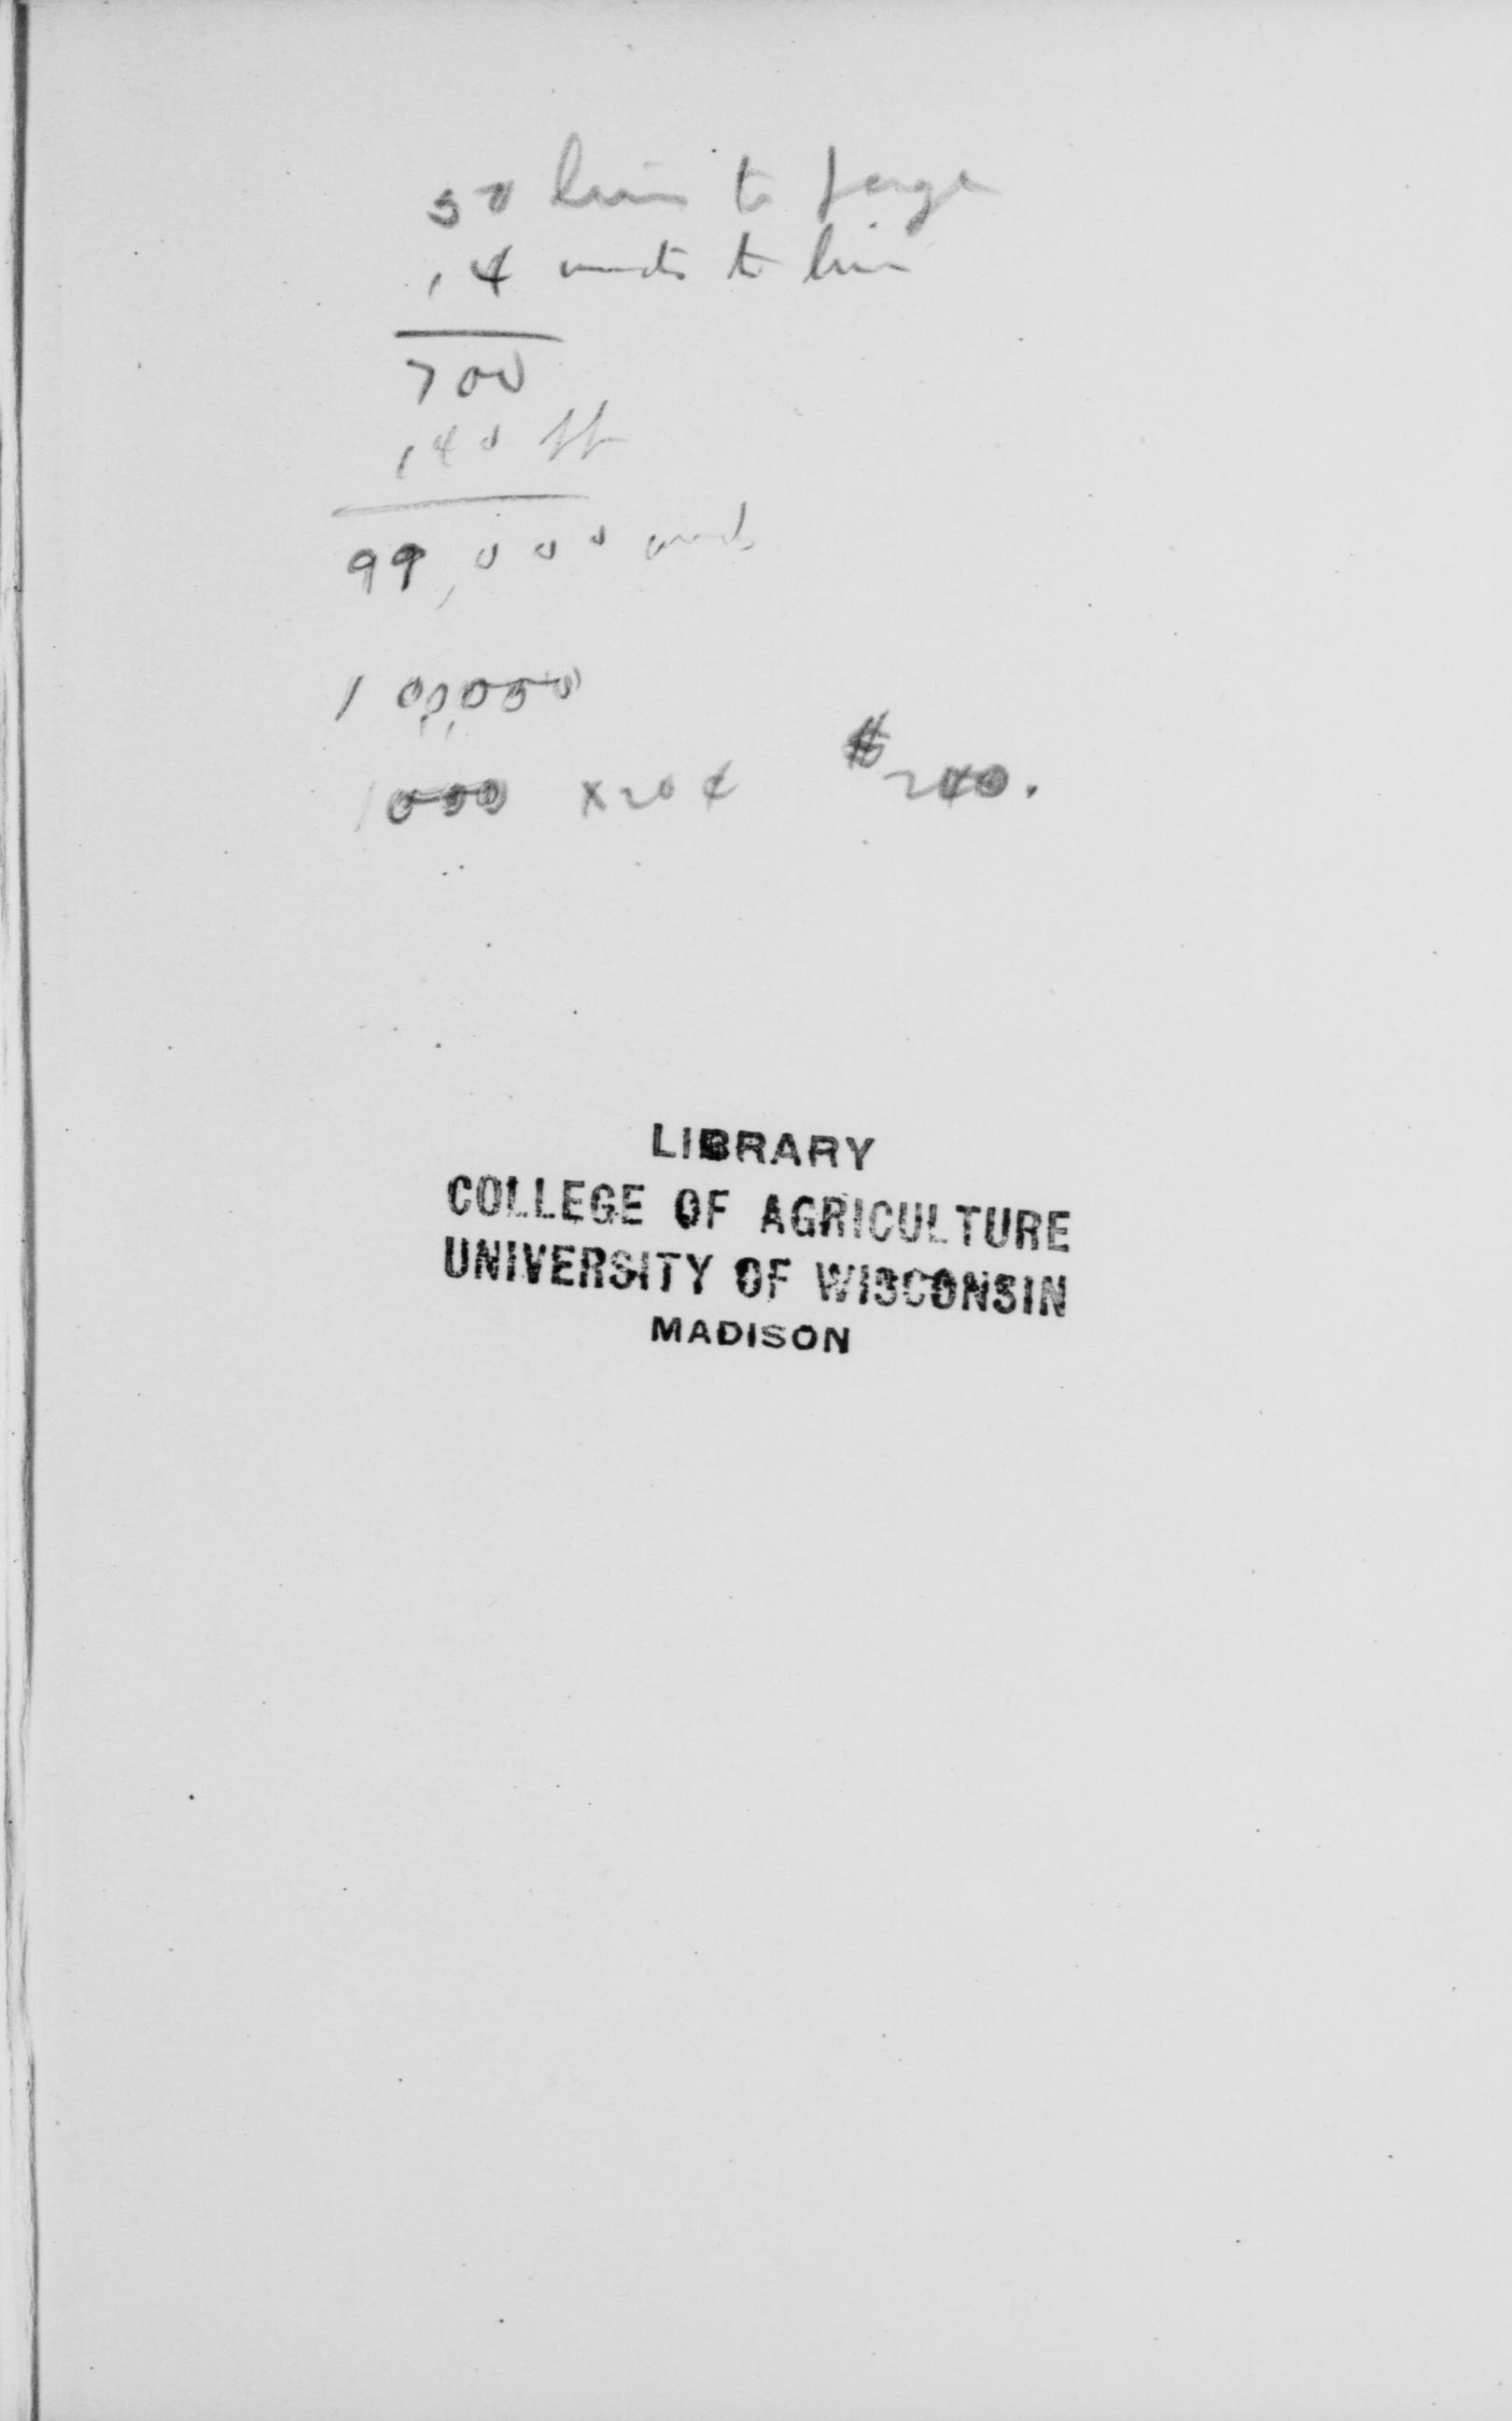 50 lines to page
14 words to line
700
140 pp
99,000 words
100,000
1000 x 20 ¢ $ 240.
LIBRARY
COLLEGE OF AGRICULTURE
UNIVERSITY OF WISCONSIN
MADISON